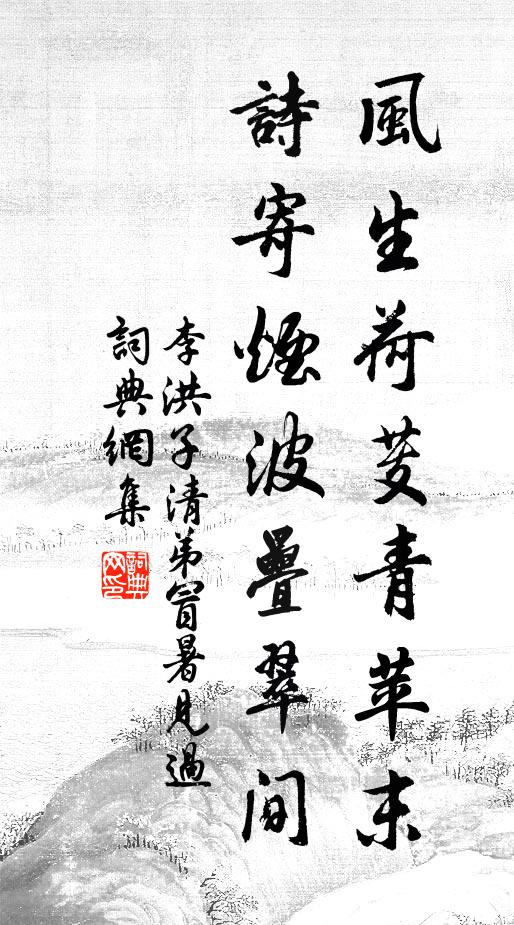 風生荷芰青苹末
詩寄煙波疊翠間
李洪子清弟冒暑見過
詞典網集
詞典
网印